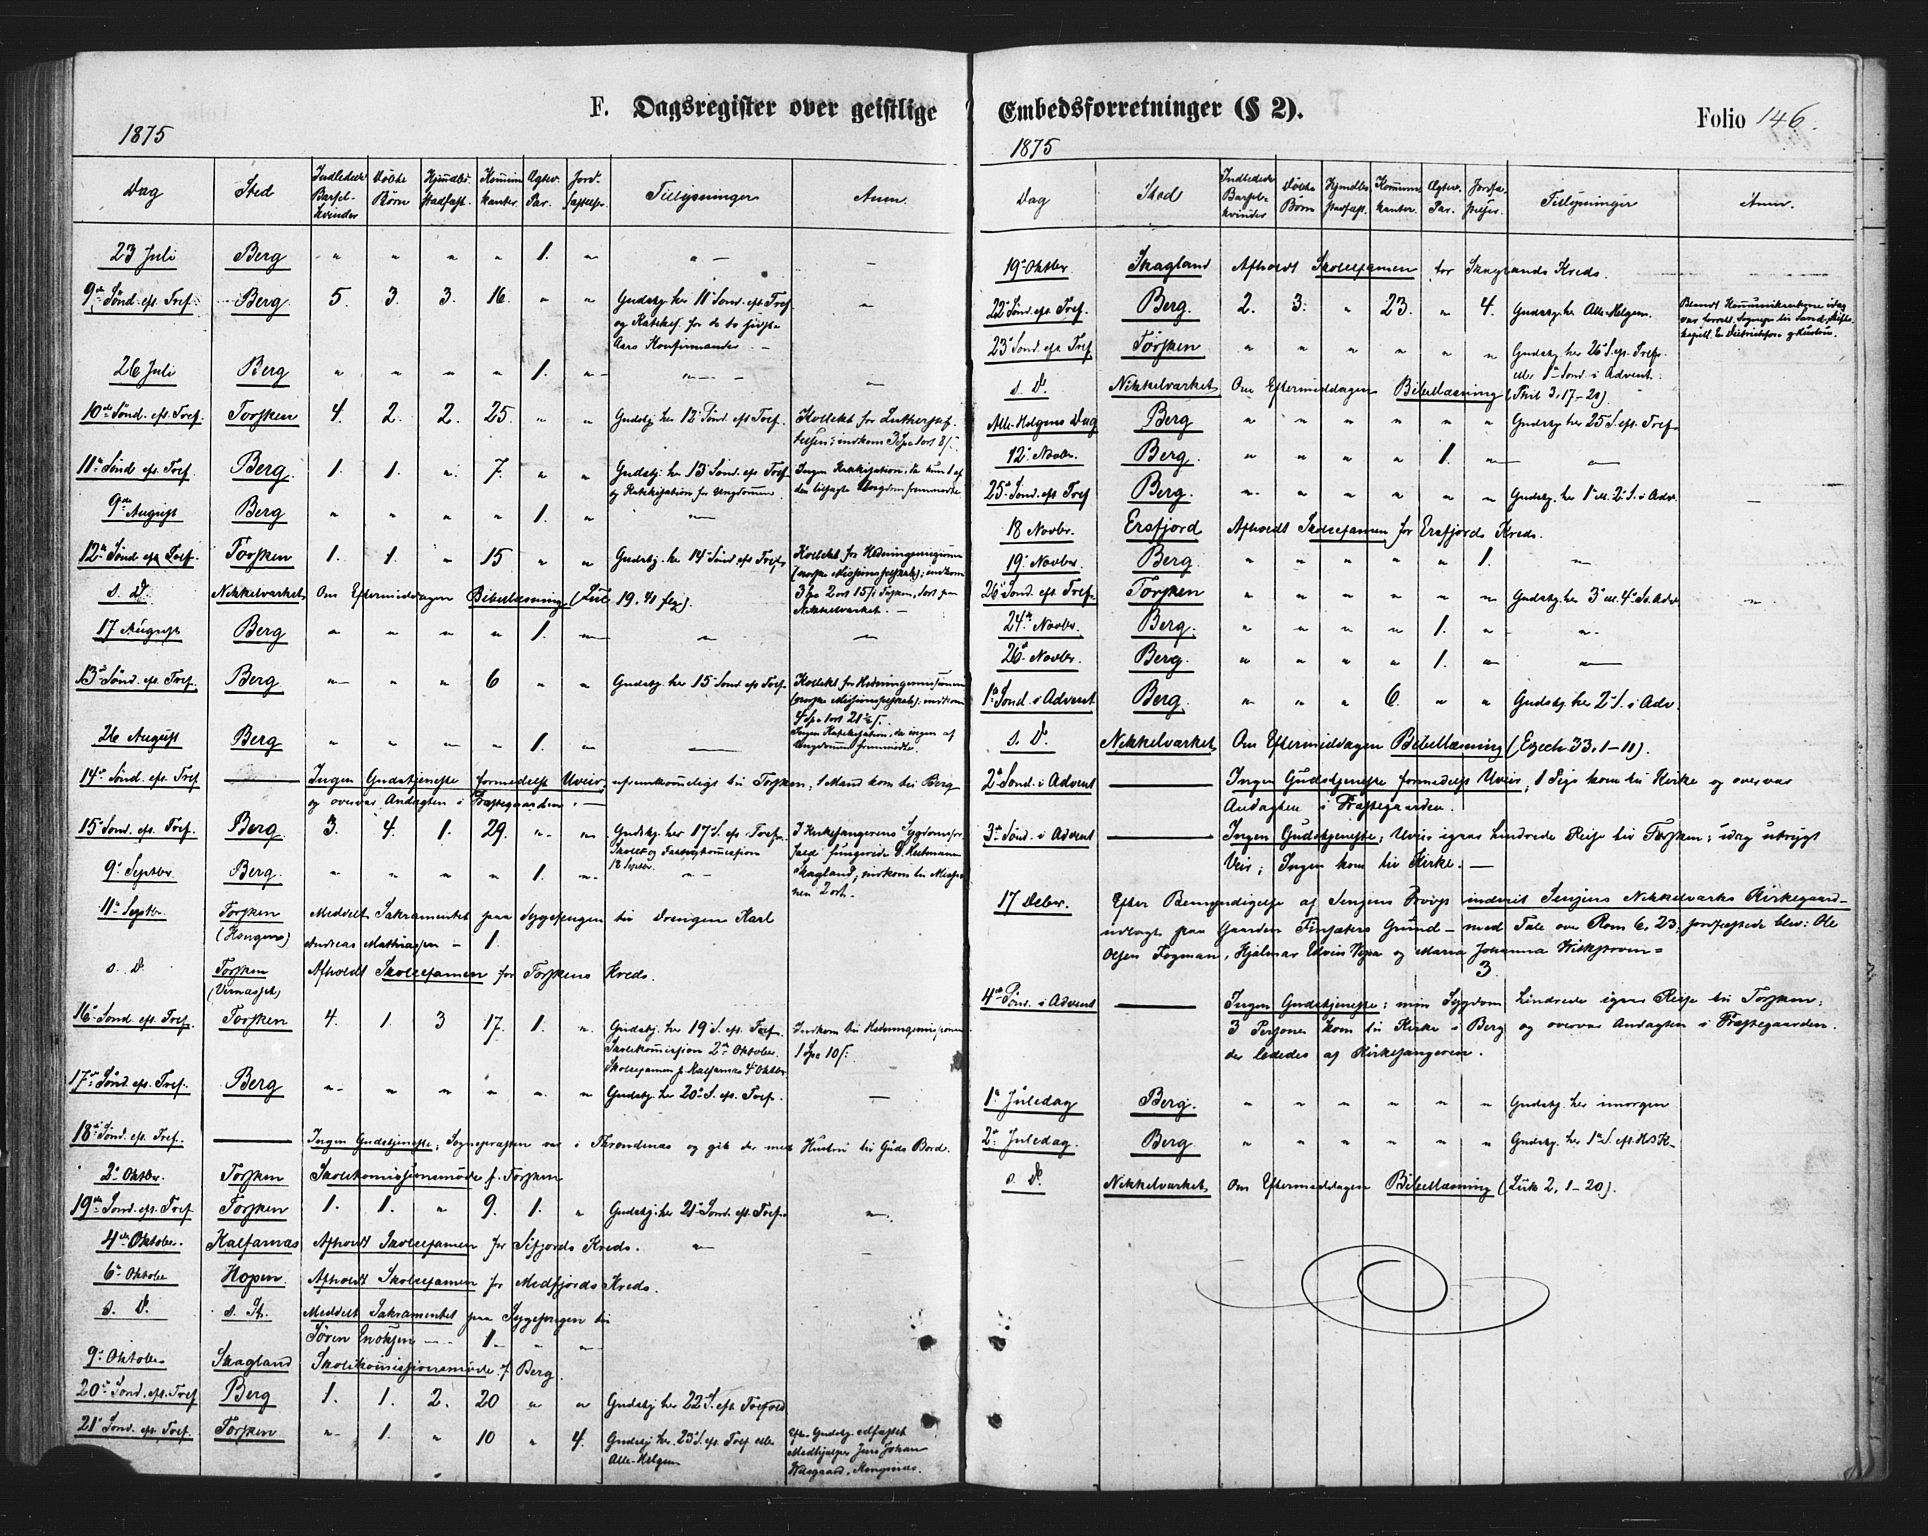 F. Dagsregister over geistlige
1875
Dag Sted Indledede Barsel-kvinder Døbte Børn Hjemdbs. stadfæst. Kommunikanter Ægtev. Par. Jord-fæstelser Tillysninger Anm.
23 Juli Berg " " " " 1. " " – –
9de Sønd. eft. Tref. Berg 5. 3. 3. 16. " " Gudstj. her 11te Sønd. eft. Tref.
og Katekes. for de to sidste
Aars Konfirmander. –
26 Juli Berg " " " " 1. " " "
10de Sønd. eft. Tref. Torsken 4. 2. 2. 25. " " Gudstj. her 12te Sønd. eft. Tref. Kollekt for Lutherstif-
telsen: indkom 3 Spe 1 ort 8 s.
11te Sønd. eft. Tref. Berg. 1. 1. " 7. " " Gudstj. her 13 Sønd. eft. Tref. Ingen Katekisation, da kun 1 af
og Katekisation for Ungdommen. den tilsagte Ungdom fremmødte.
9de August Berg " " " " 1. " "
12te Sønd. eft. Tref. Torsken 1. 1. " 15 " " Gudstj. her 14de Sønd. eft. Tref. Kollekt for Hedningemissionen
(norske Missionsselskab); indkom
s. D. Nikkelværket Om Eftermiddagen Bibellæsning (Luc 19. 41 flg). 3 Spe 2 ort 15 s i Torsken, 1 ort paa
Nikkelværket. –
17 August Berg " " " " 1. " " "
13de Sønd. eft. Tref. Berg " " " 6 " " Gudstj. her 15 Sønd. eft. Tref. Kollekt for Hedningemissionen
(norske Missionsselskab); indkom
4 Spe 1 ort 21 ½ s.
26 August Berg " " " " 1. " – Ingen Katekisation, da ingen af
Ungdommen fremmødte.
14de Sønd. eft. Tref. – Ingen Gudstjeneste formedelst Uveir; ufremkommeligt til Torsken, 1 Mand kom til Berg
og overvar Andagten i Præstegaarden. –
15 Sønd. eft. Tref. Berg 3. 4. 1. 29. " " Gudstj. her 17 S. eft. Tref. I Kirkesangerens Sygdomsfor-
Skole og Fattigkommission fald fungerede
18 Septbr.
9de Septbr. Berg. " " " " 1. " " Skagland; indkom til Missio-
nen 2 ort.
11te Septbr. Torsken Meddelt Sakramentet paa Sygesengen til Drengen Karl
Andreas Mathiassen – 1.
s. D. Torsken Afholdt Skoleexamen for Torskens Kreds.
16de Sønd. eft. Tref. Torsken 4. 1. 3 17. 1. " Gudstj. her 19 S. eft. Tref. Indkom til Hedningemissionen
Skolekommission 2den Oktober 1 Spe 10 s.
Skoleexamen p. Kalfarnæs 4 Oktbr
17de Sønd. eft. Tref. Berg " " " " " " Gudstj. her 20de S. eft. Tref. –
18de Sønd. eft. Tref. – Ingen Gudstjeneste; Sognepræsten var i Throndenæs og gik der med Hustru til Guds Bord.
2de Oktber. Torsken Skolekommissionsmøde f. Torsken
19de Sønd. eft. Tref. Torsken 1. 1. " 9. 1. " Gudstj. her 21de Sønd. eft. Tref. "
4de Oktober. Kalfarnæs Afholdt Skoleexamen for Sifjords Kreds. " –
6te Oktober Hopen Afholdt Skoleexamen for Medfjords Kreds.
s. D. s. St. Meddelt Sakramentet paa Sygesengen til
Søren Enoksen – 1. " "
9de Oktober Skagland Skolekommissionsmøde f. Berg.
20de Sønd. eft. Tref Berg 1. 1. 2. 20 " " Gudstj her 22 S. eft. Trefold
21de Sønd. eft. Tref. Torsken " 1. " 10 " 4. Gudstj her 23 S. eft. Tref. eller Efter Gudstj. edfæstet
Alle-Helgen Medhjælper Jens Johan
Embedsforretninger (§ 2). Folio 146.
1875
Dag Sted Indledede Barsel-kvinder Døbte Børn Hjemdbs. stadfæst. Kommunikanter. Ægtev. Par. Jordfæstelser. Tillysninger Anm.
19de Oktbr Skagland Afholdt Skoleexamen for Skaglands Kreds.
22de Sønd. eft. Tref. Berg. 2. 3. " 23. " 4. Gudstj. her Alle-Helgen. Blandt Kommunikanterne idag
23de Sønd. eft. Tref Torsken " " " " " " Gudstj. her 26de S. eft. Tref.
eller 1ste Sønd. i Advent.
s. D. Nikkelværket Om Eftermiddagen Bibellæsning (Phil 3, 17-21).
Alle-Helgens Dag Berg " " " " " " Gudstj her 25de S. eft. Tref.
12te Novbr. Berg. " " " " 1. " "
25de Sønd. eft. Tref Berg. " " " " " " Gudstj. her 1ste el. 2de S. i Adv. –
18 Novbr. Ersfjord Afholdt Skoleexamen for Ersfjords Kreds.
19de Novbr. Berg. " " " " " 1. "
26de Sønd. eft. Tref. Torsken " " " " " " Gudstj. her 3de el. 4de S. i Adv. "
24de Novbr. Berg. " " " " 1. " "
26de Novbr. Berg. " " " " 1. " "
1ste Sønd. i Advent Berg. " " " 6. " " Gudstj. her 2de S. i Adv.
s. D. Nikkelværket Om Eftermiddagen Bibellæsning (Ezech 33, 1-11).
2den Sønd. i Advent – Ingen Gudstjeneste formedelst Uveir; 1 Pige kom til Kirke og overvar
Andagten i Præstegaarden.
3die Sønd. i Advent – Ingen Gudstjeneste; Uveir igaar hindrede Reise til Torsken; idag utrygt
Veir; Ingen kom til Kirke. –
17 Decbr. Efter Bemyndigelse af Senjens Provst indviet Senjens Nikkelværks Kirkegaard –
udlagt paa Gaarden Finsæters Grund – med Tale over Rom 6, 23, jordfæstede blev: Ole
Olsen Fogman, Hjalmar Edvin Vesa og Maria Johanna
3.
4de Sønd. i Advent – Ingen Gudstjeneste; min Sygdom hindrede igaar Reise til Torsken;
3 Personer kom til Kirke i Berg og overvar Andagten i Præstegaarden.
der lededes af Kirkesangeren.
1ste Juledag Berg. " " " " " " Gudstj. her imorgen
2den Juledag Berg " " " " " " Gudstj. her 1ste S. eft. H3K.
s. D. Nikkelværket Om Eftermiddagen Bibellæsning (Luk 2, 1-20).